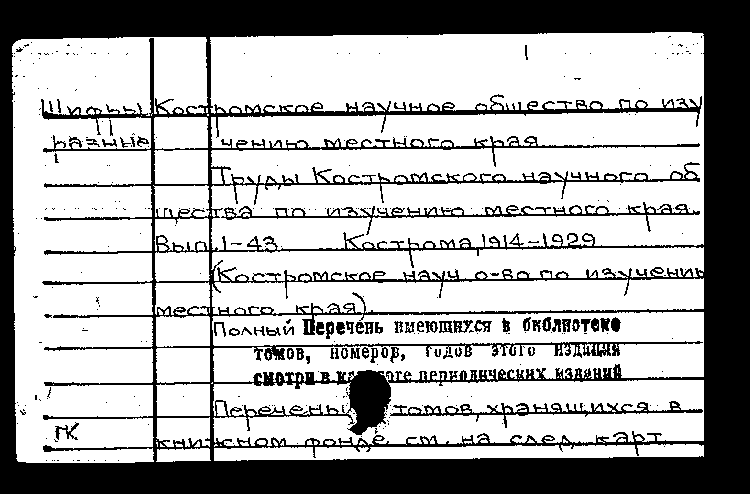 Шифры Костромское научное общество по изу
разные чению местного края
Труды Костромского научного об
щества по изучению местного края.
Вып. 1-43. Кострома, 1914-1929
(Костромское науч о-во по изучению
местного края).
Полный Перечень имеющихся в библиотеке
томов, номеров, годов этого издания
смотри в каталоге периодических изданий
Перечень томов, хранящихся в
ГК книжном фонде см. на след. карт.